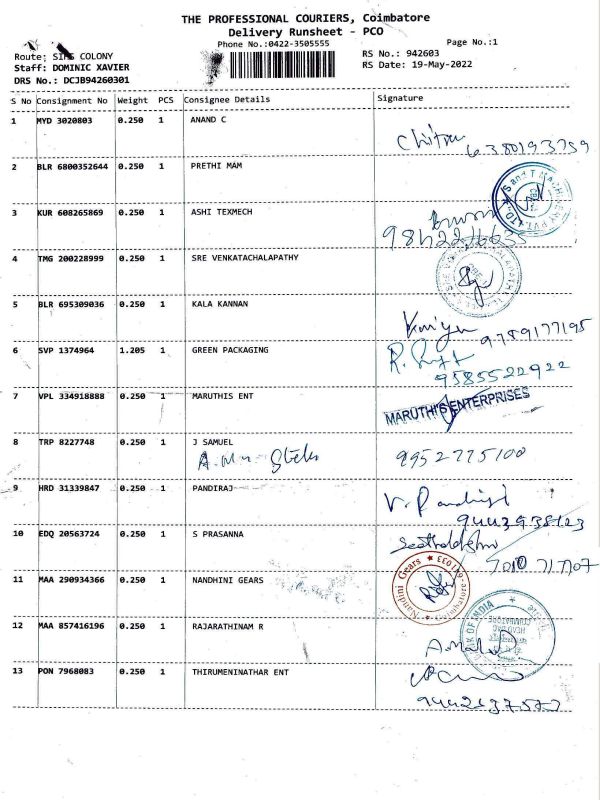 THE PROFESSIONAL COURIERS, Coimbatore
Delivery Runsheet - PCO
Phone No.:0422-3505555
Page No.:1
Route: SIHS COLONY
RS No.: 942603
Staff: DOMINIC XAVIER
RS Date: 19-May-2022
DRS No.: DCJB94260301
S No Consignment No Weight PCS Consignee Details Signature
1 MYD 3020803 0.250 1 ANAND C
Chitra 6380193759
2 BLR 6800352644 0.250 1 PRETHI MAM
3 KUR 608265869 0.250 1 ASHI TEXMECH
4 TMG 200228999 0.250 1 SRE VENKATACHALAPATHY
5 BLR 695309036 0.250 1 KALA KANNAN
9789177195
6 SVP 1374964 1.205 1 GREEN PACKAGING
9585522922
7 VPL 334918888 0.250 1 MARUTHIS ENT
MARUTHI'S ENTERPRISES
8 TRP 8227748 0.250 1 J SAMUEL
9952775100
9 HRD 31339847 0.250 1 PANDIRAJ
10 EDQ 20563724 0.250 1 S PRASANNA
11 MAA 290934366 0.250 1 NANDHINI GEARS
Nandini Gears
12 MAA 857416196 0.250 1 RAJARATHINAM R
OF INDIA
13 PON 7968083 0.250 1 THIRUMENINATHAR ENT